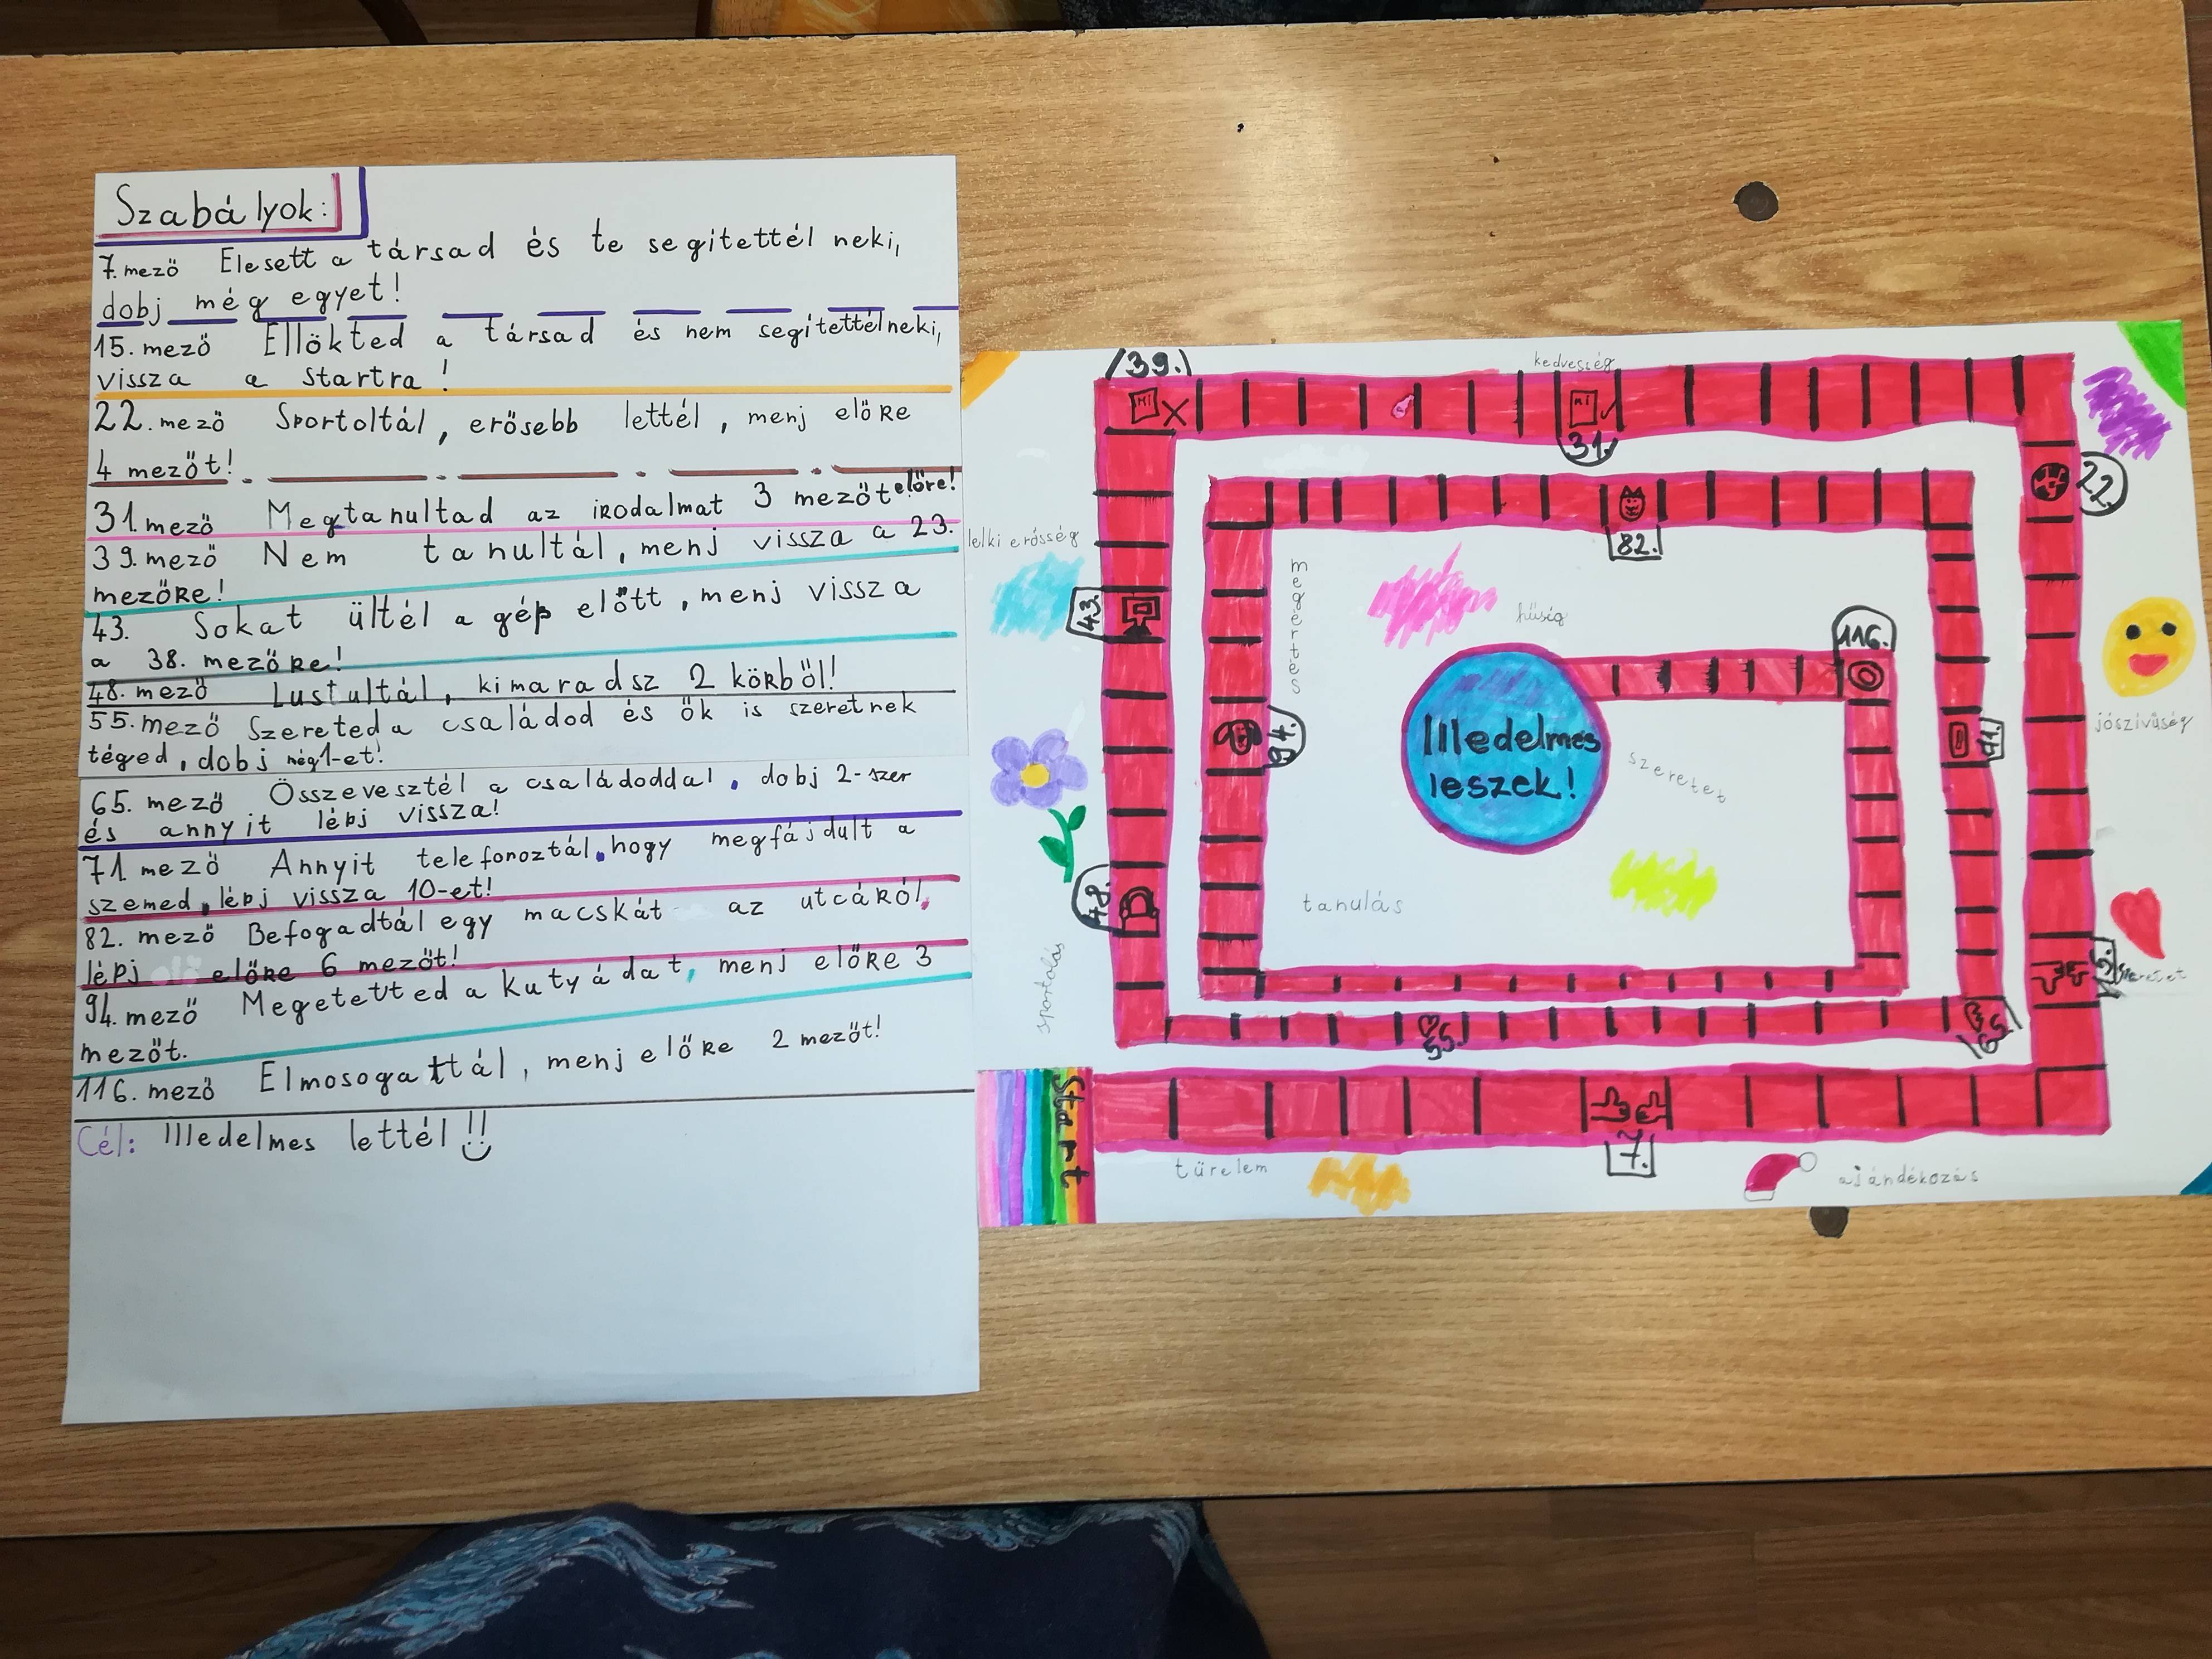 Szabályok:
7. mező Elesett a társad és te segitettél neki,
dobj még egyet!
15. mező Ellökted a társad és nem segitettél neki,
vissza a startra!
22. mező Sportoltál, erősebb lettél, menj előre
4 mezőt!
31. mező Megtanultad az irodalmat 3 mezőt előre!
39. mező Nem tanultál, menj vissza a 23.
mezőre!
43. Sokat ültél a gép előtt, menj vissza
a 38. mezőre!
48. mező Lustultál, kimaradsz 2 körből!
55. mező Szereted a családod és ők is szeretnek
téged, dobj még 1-et!
65. mező Összevesztél a családoddal, dobj 2-szer
és annyit lépj vissza!
71 mező Annyit telefonoztál, hogy megfájdult a
szemed, lépj vissza 10-et!
82. mező Befogadtál egy macskát az utcáról,
lépj előre 6 mezőt!
94. mező Megetetted a kutyádat, menj előre 3
mezőt.
116. mező Elmosogattál, menj előre 2 mezőt!
Cél: Illedelmes lettél!!
39.
kedvesség
31.
22.
lelki erősség
82.
megértés
43.
hűség
116.
94.
71.
Illedelmes
leszek!
szeretet
jószívűség
tanulás
48.
sportolás
szeretet
55.
65.
Start
7.
türelem
ajándékozás